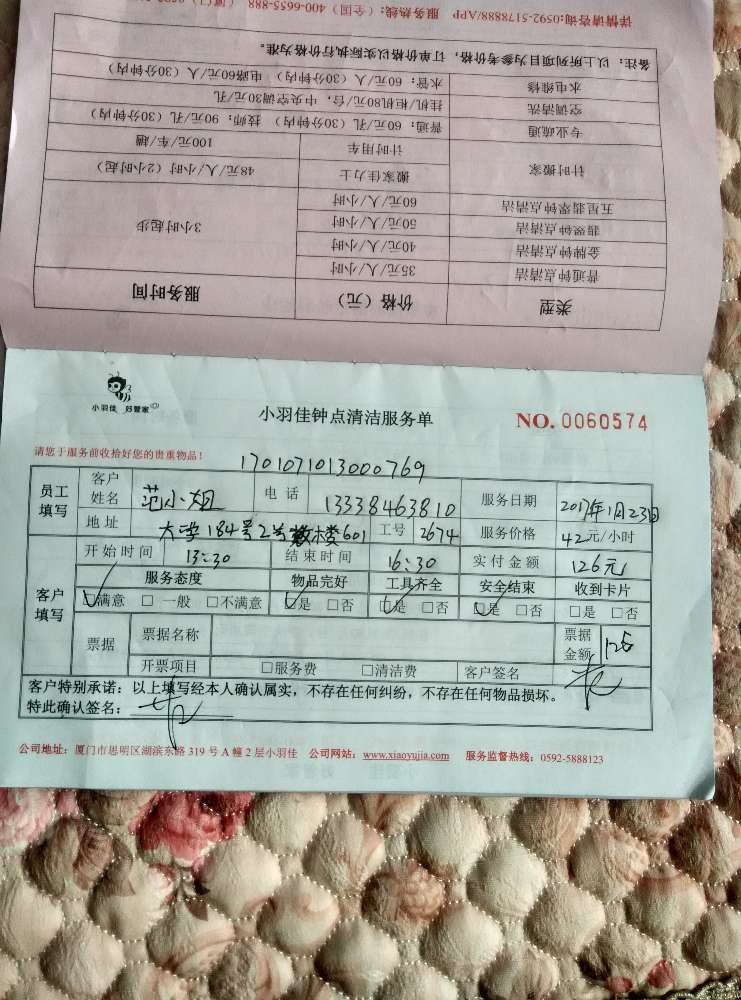 详情请咨询:0592-5178888/APP 服务热线:(全国)400-6655-888 (厦门)
备注:以上所列项目为参考价格,订单价格以实际执行价格为准。
水电维修 水管:60元/人(30分钟内) 电路60元/人(30分钟内)
空调清洗 挂机柜机80元/台,中央空调30元/孔
专业疏通 普通:60元/孔(30分钟内) 技师:90元/孔(30分钟内)
计时搬家 计时用车 100元/车/趟
搬家佳力士 48元/人/小时(2小时起)
五星翡翠钟点清洁 60元/人/小时 3小时起步
翡翠钟点清洁 50元/人/小时
金牌钟点清洁 40元/人/小时
普通钟点清洁 35元/人/小时
类型 价格(元) 服务时间
小羽佳 好管家
小羽佳钟点清洁服务单 NO. 0060574
请您于服务前收拾好您的贵重物品!
1701071013000769
员工填写 客户姓名 范小姐 电话 13338463810 服务日期 2017年1月23日
地址 大学184号2号楼601 工号 2674 服务价格 42元/小时
客户填写 开始时间 13:30 结束时间 16:30 实付金额 126元
服务态度 物品完好 工具齐全 安全结束 收到卡片
☑满意 □一般 □不满意 ☑是 □否 ☑是 □否 ☑是 □否 □是 □否
票据 票据名称 票据金额 126
开票项目 □服务费 □清洁费 客户签名
客户特别承诺:以上填写经本人确认属实,不存在任何纠纷,不存在任何物品损坏。
特此确认签名:
公司地址:厦门市思明区湖滨东路 319 号 A 幢 2 层小羽佳 公司网站:www.xiaoyujia.com 服务监督热线:0592-5888123